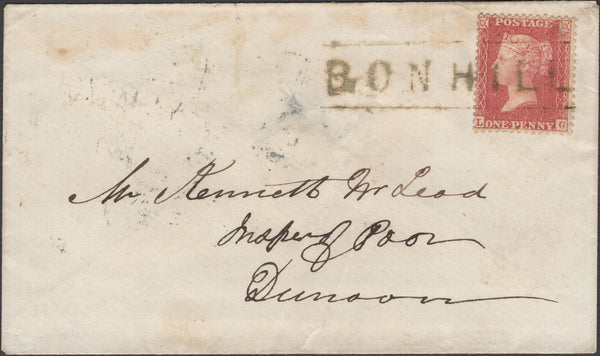 POSTAGE
BONHILL
L ONE PENNY. G
Mr Kenneth McLeod
Insper of Poor
Dunoon